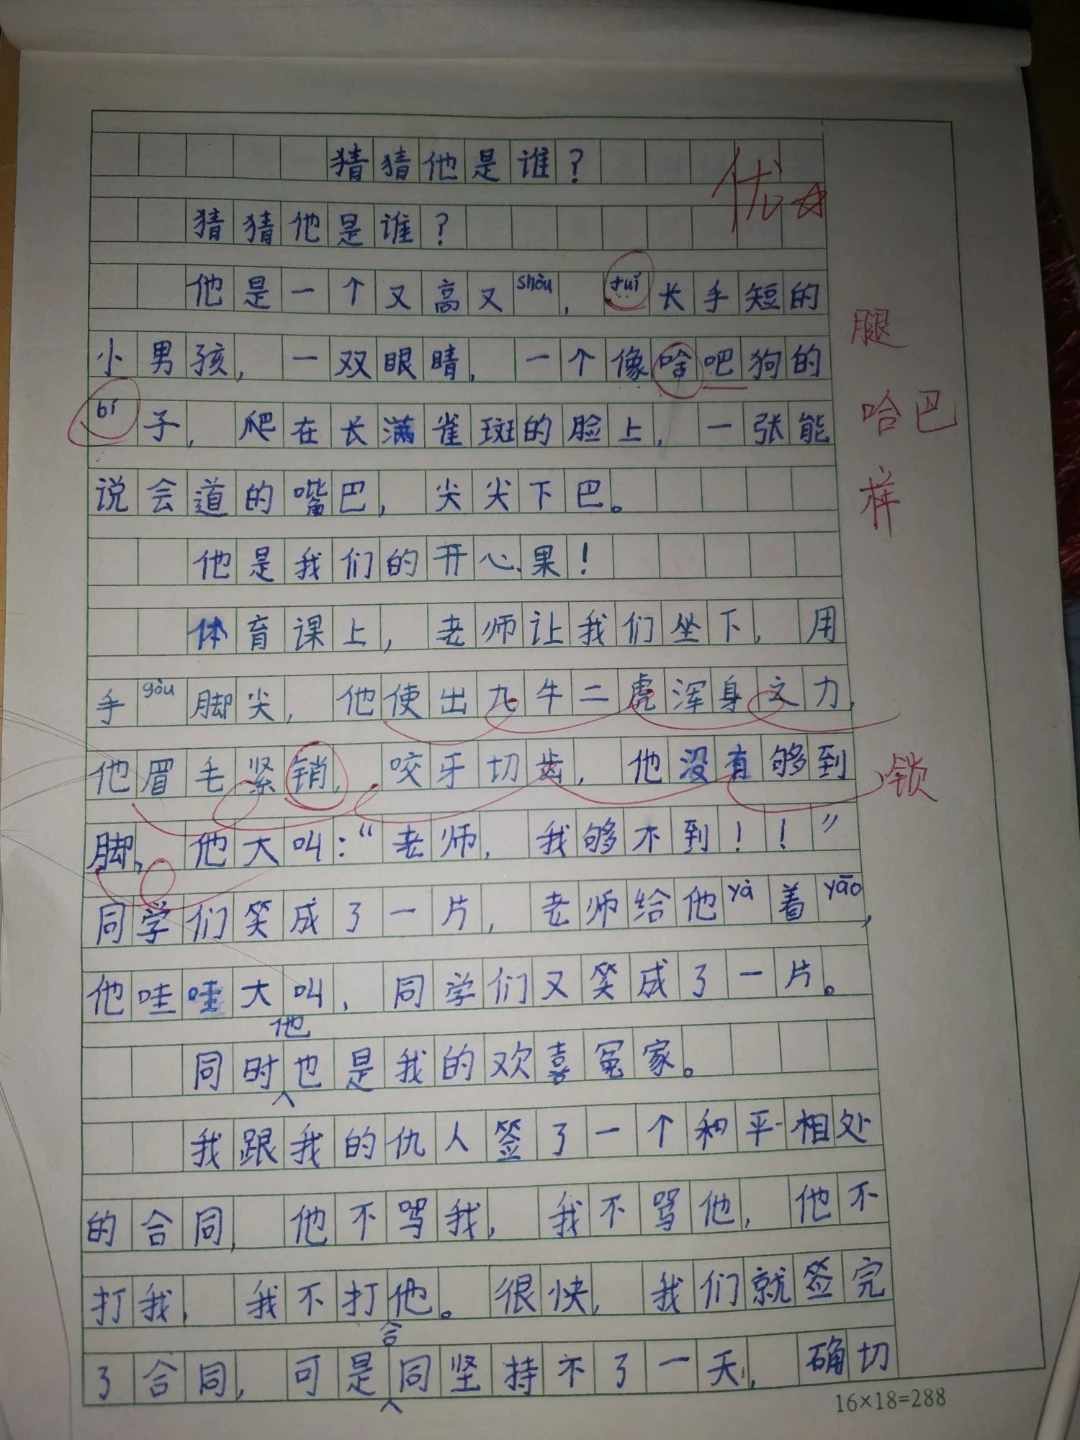 猜猜他是谁?
优☆
猜猜他是谁?
他是一个又高又shòu,tuǐ长手短的
腿
小男孩,一双眼睛,一个像哈吧狗的
哈巴
bí子,爬在长满雀斑的脸上,一张能
说会道的嘴巴,尖尖下巴。
他是我们的开心果!
体育课上,老师让我们坐下,用
手gòu脚尖,他使出九牛二虎浑身之力,
他眉毛紧销,咬牙切齿,他没有够到
锁
脚,他大叫:“老师,我够不到!!”
同学们笑成了一片,老师给他yà着yāo,
他哇哇大叫,同学们又笑成了一片。
同时他也是我的欢喜冤家。
我跟我的仇人签了一个和平相处
的合同,他不骂我,我不骂他,他不
打我,我不打他。很快,我们就签完
了合同,可是合同坚持不了一天,确切
16×18=288